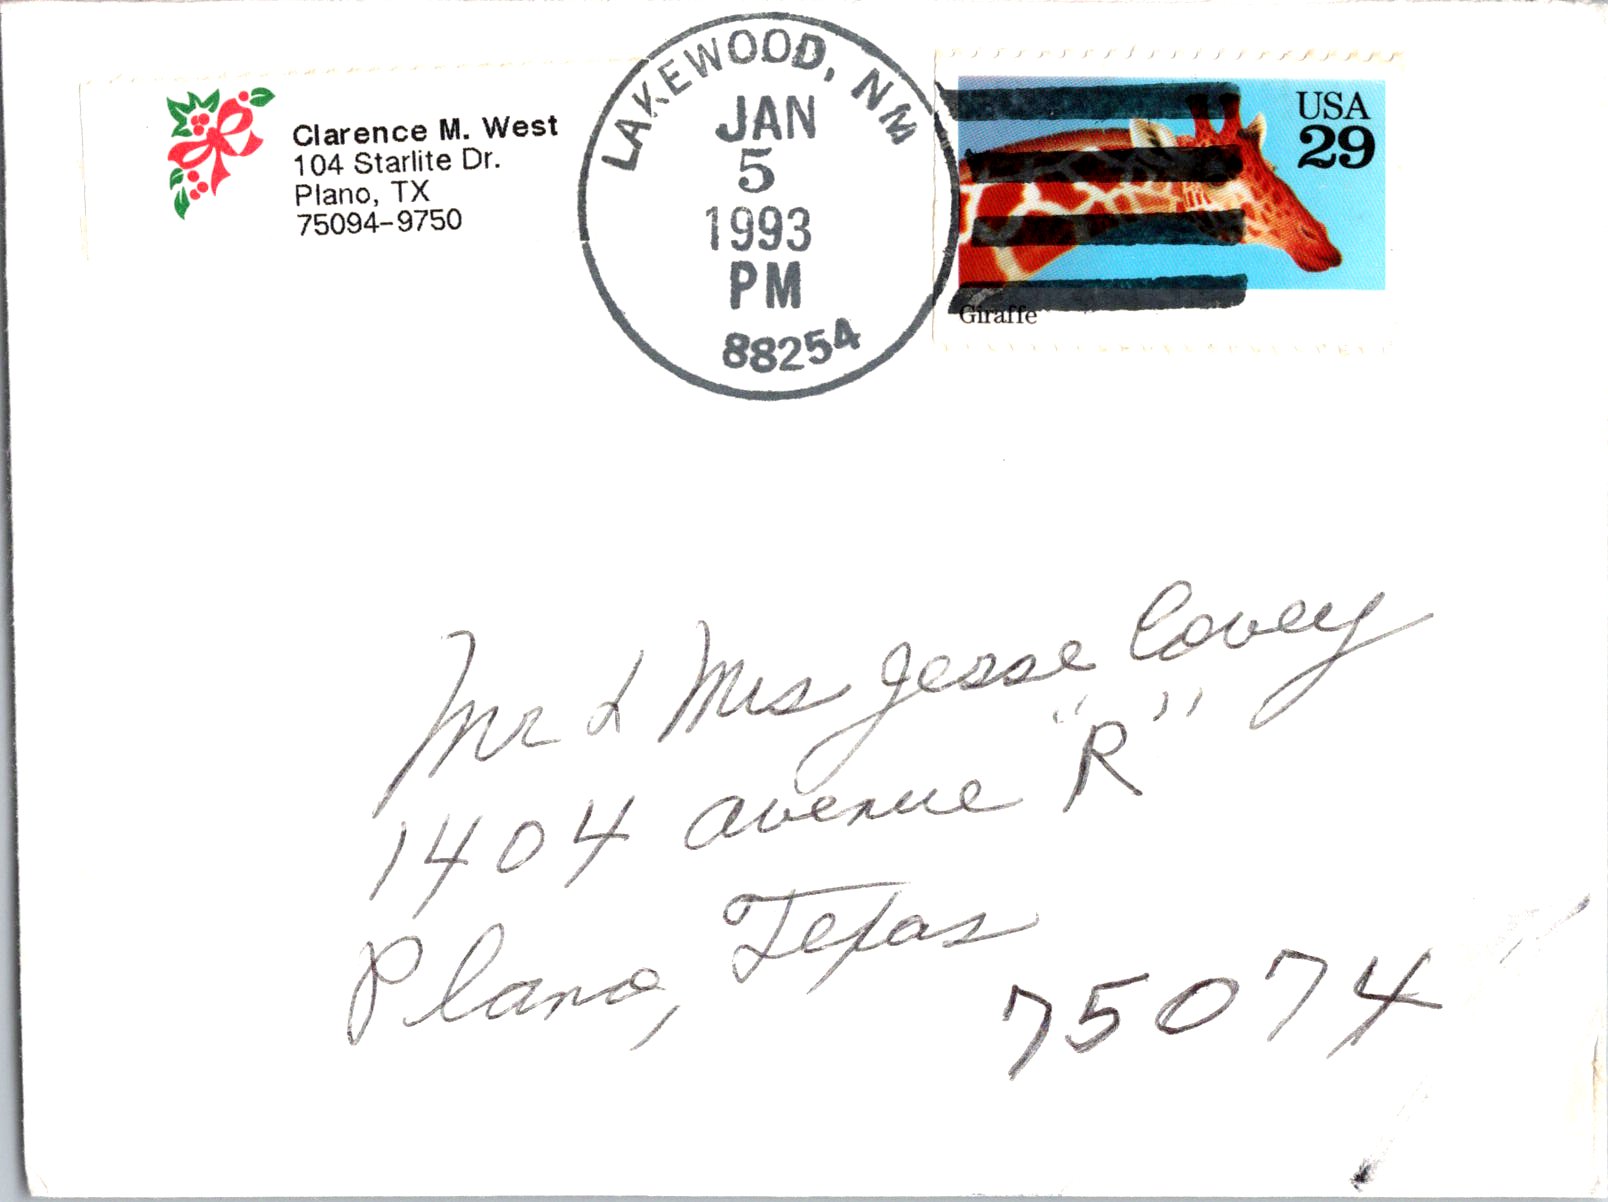 Clarence M. West
104 Starlite Dr.
Plano, TX
75094-9750
LAKEWOOD, NM
JAN
5
1993
PM
88254
USA
29
Giraffe
Mr & Mrs Jesse Covey
1404 avenue "R"
Plano, Texas
75074